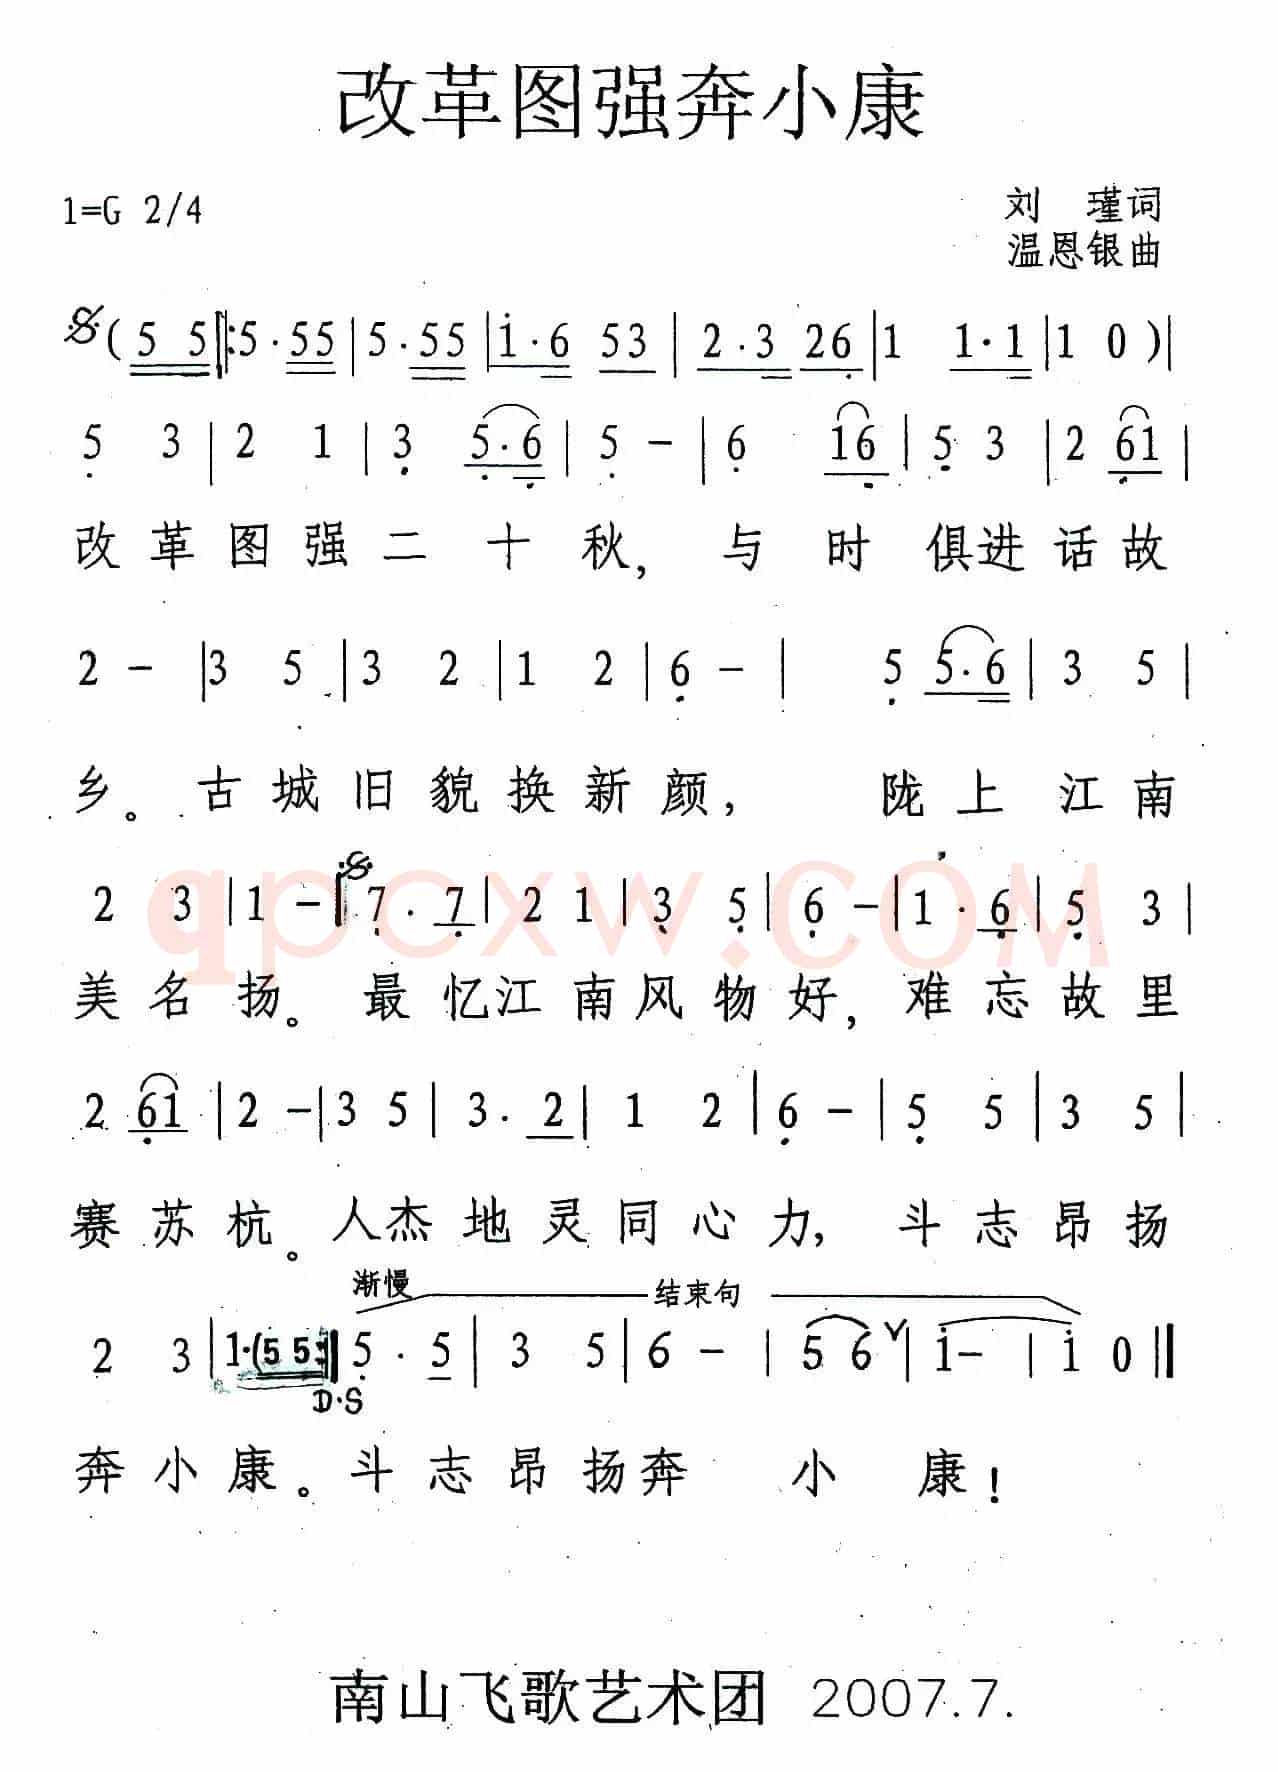 改革图强奔小康
1=G 2/4
刘 瑾词
温恩银曲
(5 5‖:5·55|5·55|1·6 53|2·3 26|1 1·1|1 0)|
5 3|2 1|3 5·6|5 -|6 16|5 3|2 61|
改革图强二十秋,与时俱进话故
2 -|3 5|3 2|1 2|6 -|5 5·6|3 5|
乡。古城旧貌换新颜,陇上江南
2 3|1 -|7·7|2 1|3 5|6 -|1·6|5 3|
qpcxw.COM
美名扬。最忆江南风物好,难忘故里
2 61|2 -|3 5|3·2|1 2|6 -|5 5|3 5|
赛苏杭。人杰地灵同心力,斗志昂扬
渐慢 结束句
2 3|1·(5 5:‖5·5|3 5|6 -|5 6∨|1 -|1 0‖
D·S
奔小康。斗志昂扬奔小康!
南山飞歌艺术团 2007.7.